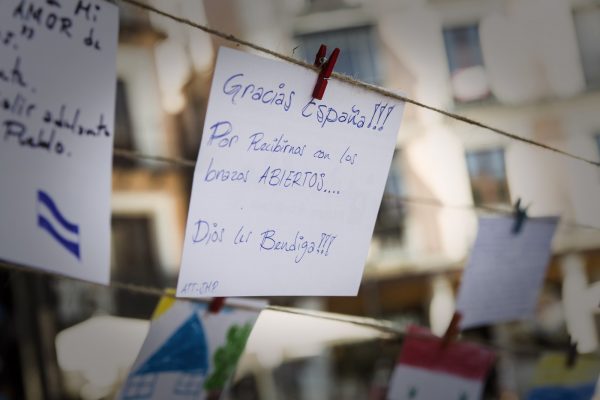 Mi
AMOR de
adelante
Pueblo.
Gracias España!!!
Por Recibirnos con los
brazos ABIERTOS....
Dios les Bendiga!!!
ATT: JHP